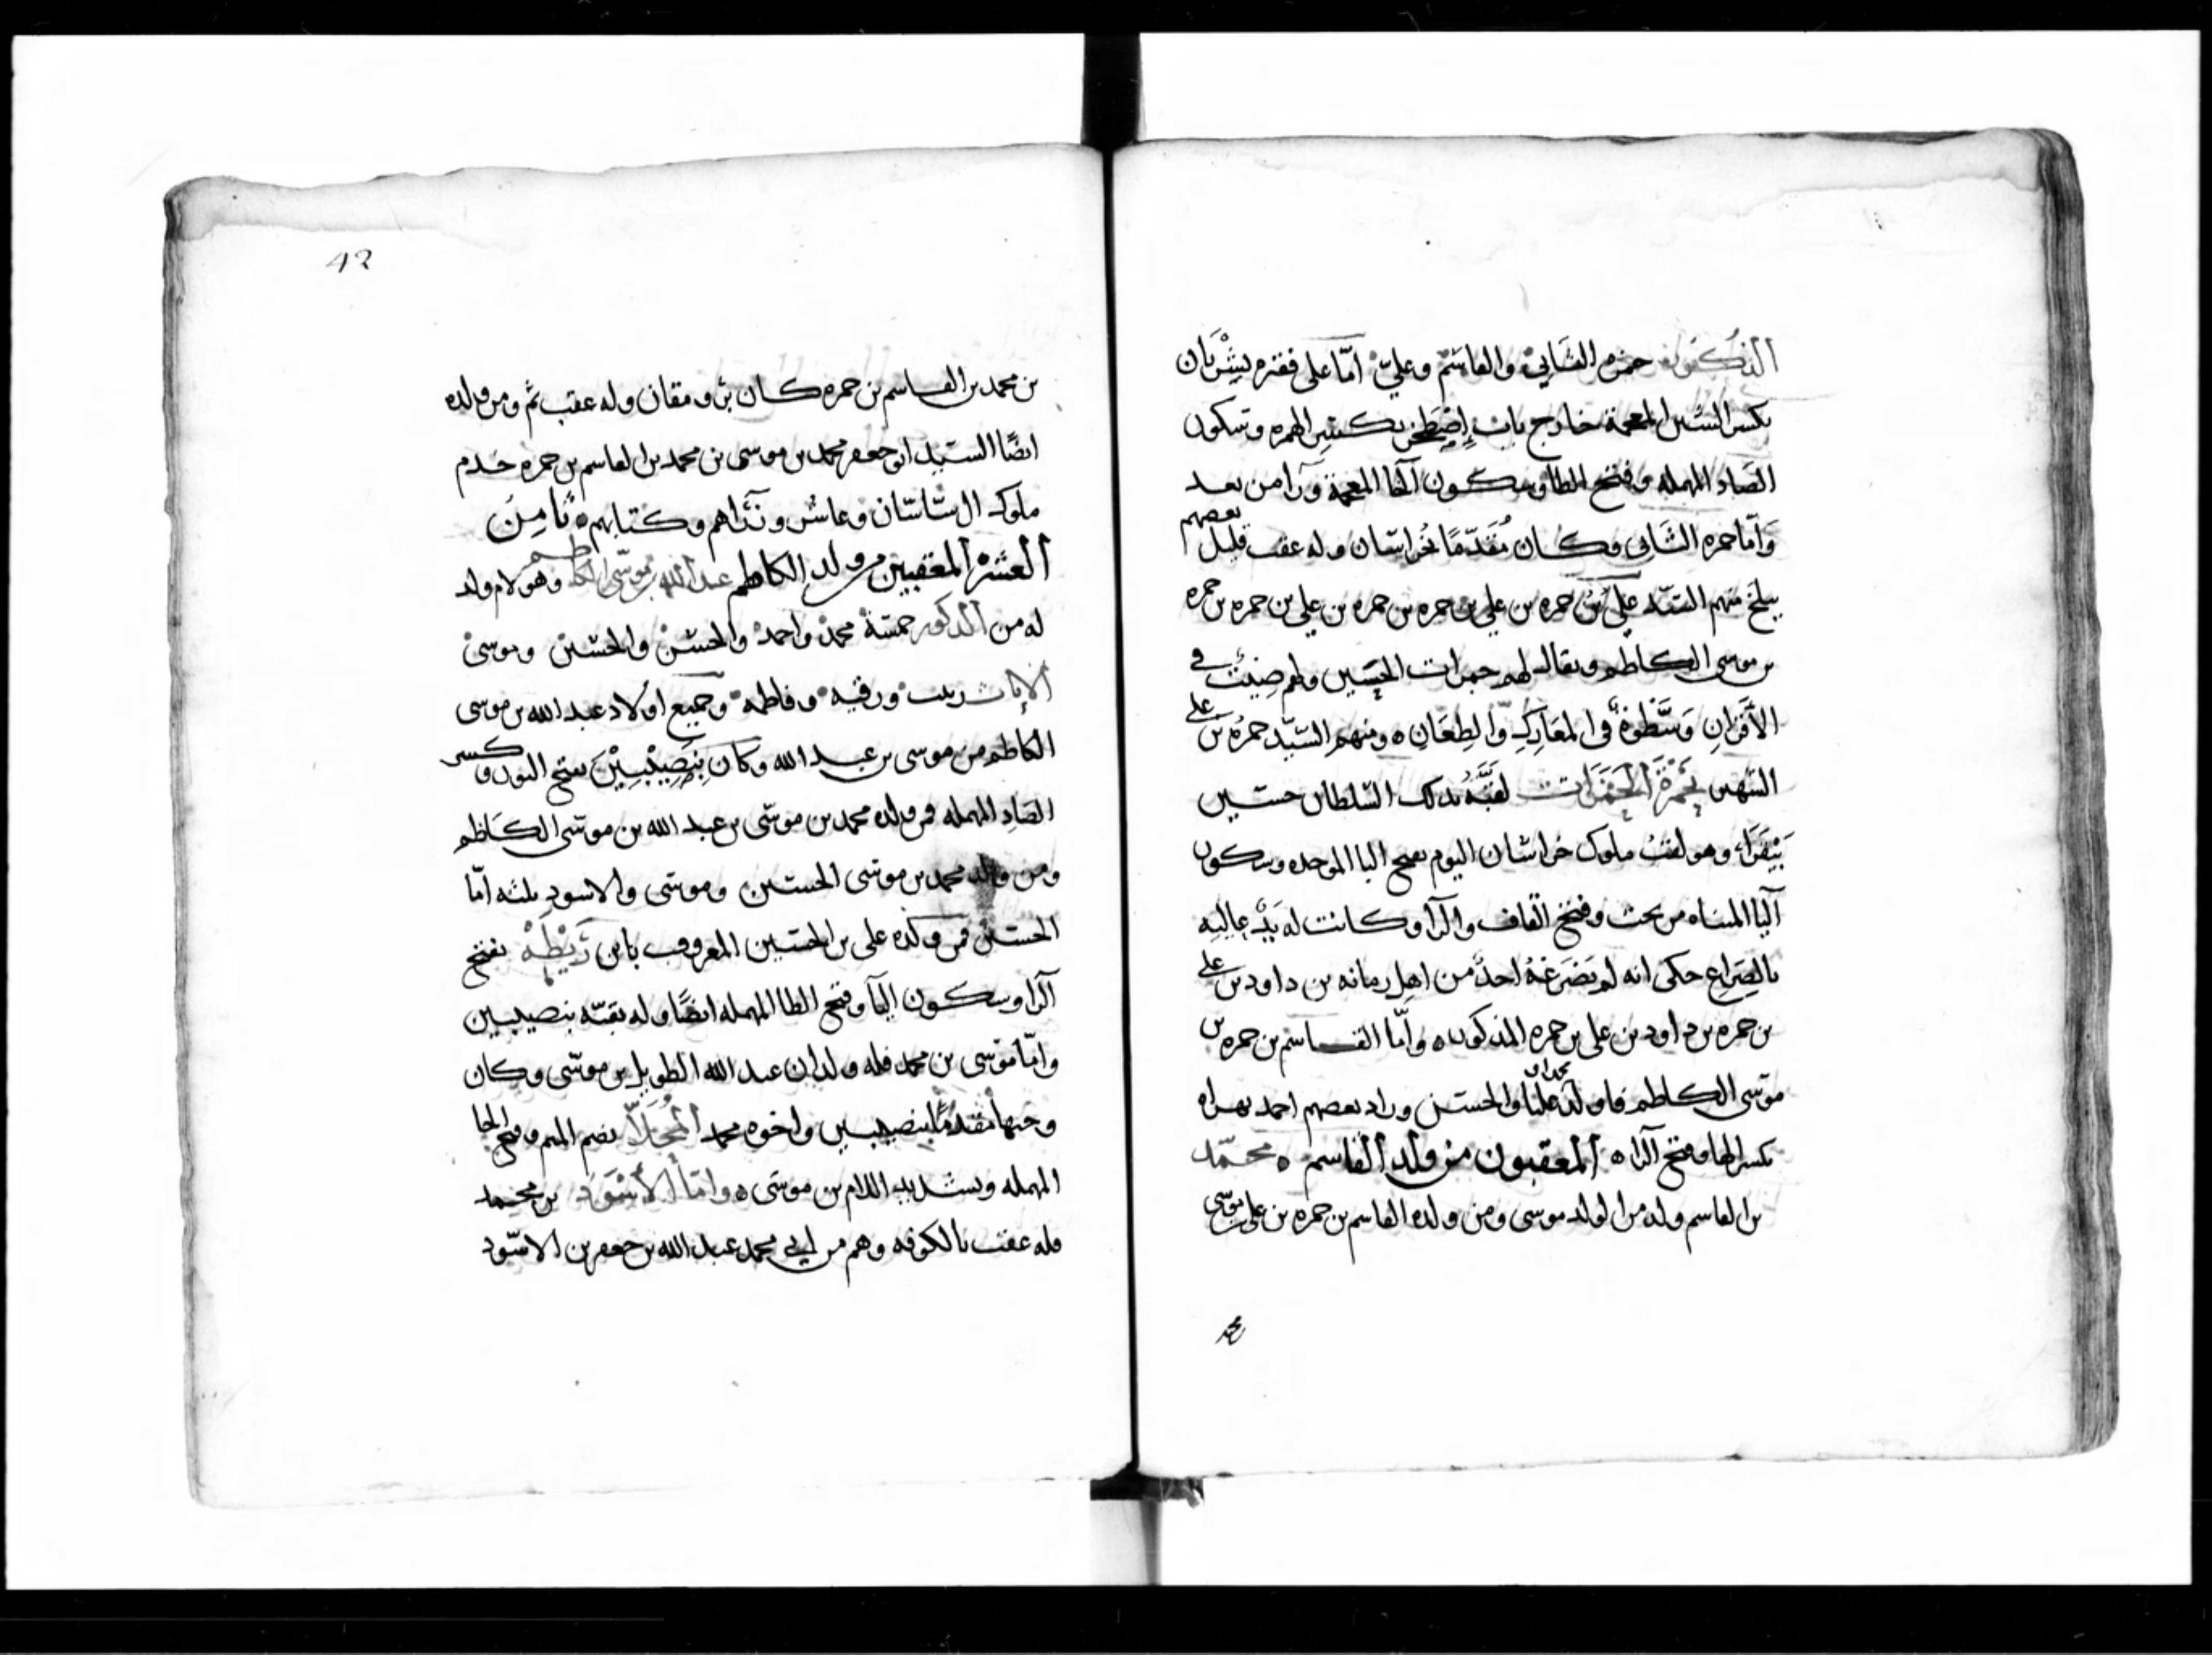 الذكور حمزه الثاني والقاسم وعلي اما علي فقبره بشيران
بكسر الشين المعجمة خارج باب اصطخر بكسر الهمزه وسكون
الصاد المهمله وفتح الطا وسكون الخا المعجمة ورا من بعد
واما حمزه الثاني وكان مقدما بخراسان وله عقب قليل بعضهم
ببلخ منهم السيد علي بن حمزه بن علي بن حمزه بن حمزه بن علي بن حمزه بن حمزه
بن موسى الكاظم ويقال لهم جمرات الحسين ولهم صيت في
الاقران وسطوة في المعارك والطعان ه ومنهم السيد حمزه بن علي
الشهير بحمزة الجمرات لقبه بذلك السلطان حسين
بيقرا وهو لقب ملوك خراسان اليوم بفتح البا الموحده وسكون
اليا المثناه من تحت وفتح القاف والرا وكانت له يد عاليه
بالصراع حكى انه لم يضرعه احد من اهل زمانه بن داود بن علي
بن حمزه بن داود بن علي بن حمزه المذكور ه واما القاسم بن حمزه بن
موسى الكاظم فاولد محمدا و عليا والحسن وزاد بعضهم احمد بهراه
بكسر الها وفتح الرا ه المعقبون من ولد القاسم ه محمد
بن القاسم وله من الولد موسى ومن ولده القاسم بن حمزه بن علي بن موسى
محمد
42
بن محمد بن القاسم بن حمزه كان وله عقب ثم ومن ولده
ايضا السيد ابو جعفر محمد بن موسى بن محمد بن القاسم بن حمزه خدم
ملوك ال ساسان وعاشر وزراهم وكتابهم ه ثامن
العشره المعقبين من ولد الكاظم عبد الله بن موسى الكاظم وهو لام ولد
له من الذكور خمسة محمد واحمد والحسن والحسين وموسى
الاناث زينب ورقيه وفاطمه وجميع اولاد عبد الله بن موسى
الكاظم من موسى بن عبد الله وكان بنصيبين بفتح النون وكسر
الصاد المهمله فمن ولده محمد بن موسى بن عبد الله بن موسى الكاظم
ومن ولد محمد بن موسى الحسين وموسى والاسود ثلثه اما
الحسين فمن ولده علي بن الحسين المعروف بابن ريطه بفتح
الرا وسكون اليا وفتح الطا المهمله ايضا وله بقيه بنصيبين
واما موسى بن محمد فله ولدان عبد الله الطويل بن موسى وكان
وجيها مقدما بنصيبين واخوه محمد المحلا بضم الميم وفتح الحا
المهمله وتشديد اللام بن موسى ه واما الاسود بن محمد
فله عقب بالكوفه وهم من ابي محمد عبد الله بن جعفر بن الاسود